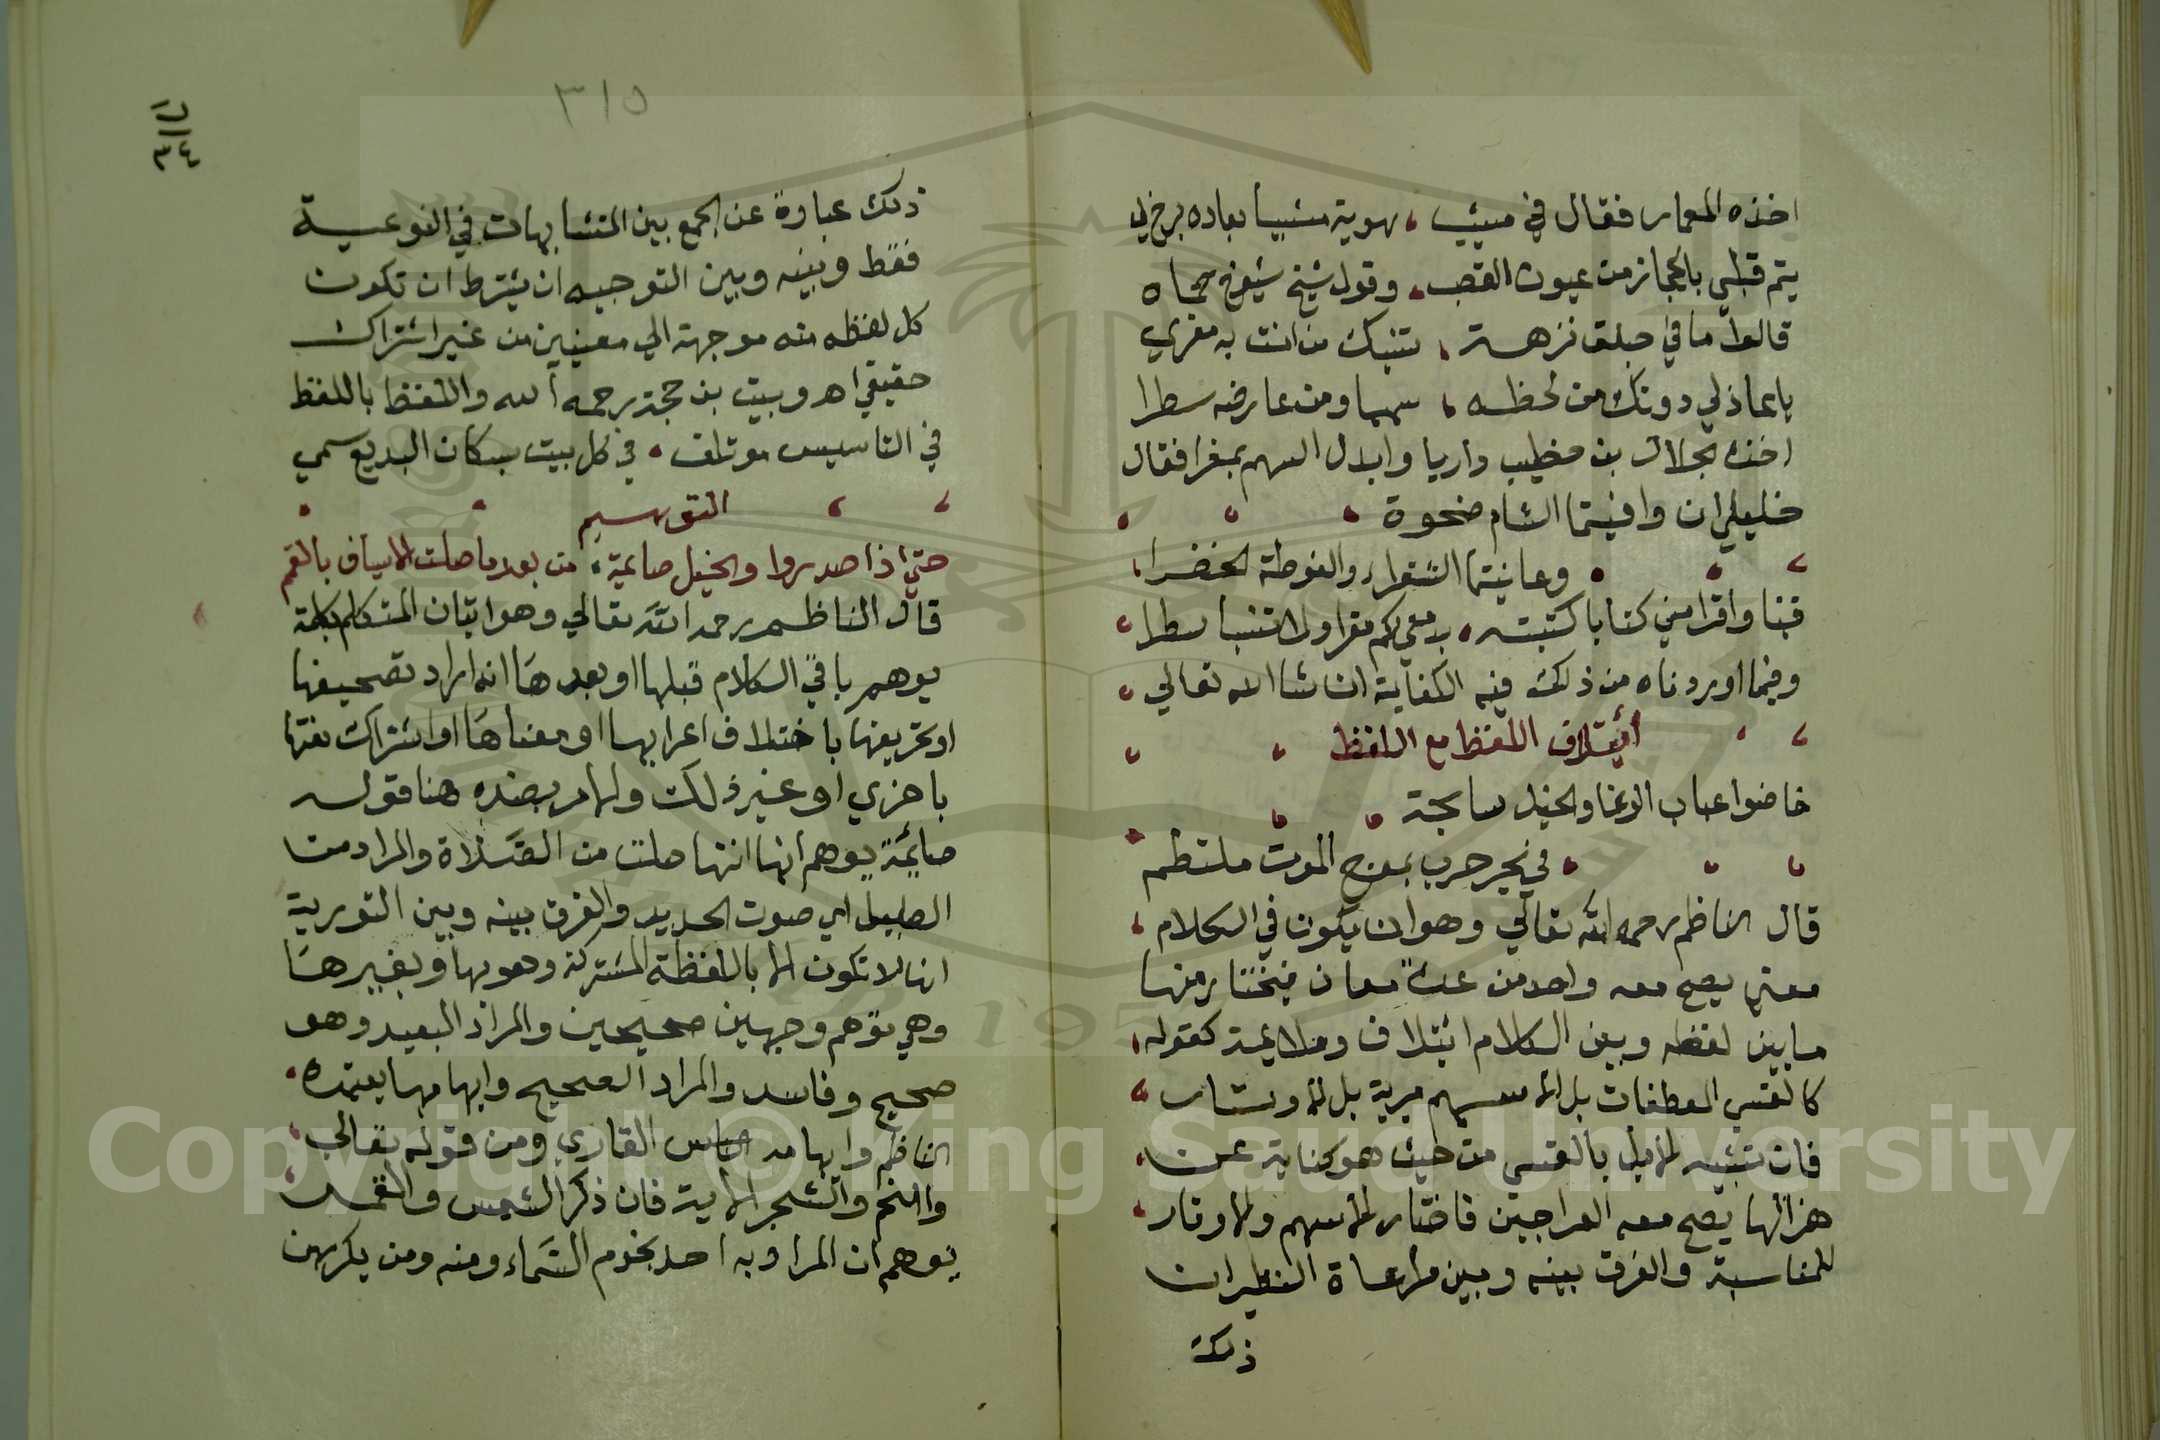 اخذه المعمار فقال في مبيب ، هويته مشبيا بعاده برح لي
يتم قبلي بالحجاز من عيون القصب ، وقول شيخ شيوخ حماه
قالوا ما في جلق نزهة ، تنيك من انت به مغري
يا عاذلي دونك من لحظه ، سهما ومن عارضه سطرا
اخذه جلال بن خطيب داريا وابدل السهم بمقرا فقال
خليلي ان وافيتما الشام ضحوة
وعاينتما الشقراء والغوطة الخضرا
قفا واقرا مني كتابا كتبته ، بدمعي لكم مقرا ولا تنسيا سطرا
وفيما اوردناه من ذلك فيه الكفاية ان شا الله تعالي
أيتلاف اللفظ مع اللفظ
خاضوا عباب الوغا والخيل سابحة
في بحر حرب بموج الموت ملتطم
قال الناظم رحمه الله تعالي وهو ان يكون في الكلام
معني يصح معه واحد من عدة معان فيختار منها
ما بين لفظه وبين الكلام ائتلاف وملايمة كقوله
كالقسي المعطفات بل الاسهم مبرية بل الاوتار
فان تشبيه الابل بالقسي من حيث هو كناية عن
هزالها يصح معه العراجين فاختار الاسهم والاوتار
للمناسبة والفرق بينه وبين مراعاة النظير ان
ذلك
٣١٥
ذلك عبارة عن الجمع بين المتشابهات في النوعية
فقط وبينه وبين التوجيه ان يشترط ان تكون
كل لفظه منه موجهة الي معنيين من غير اشتراك
حقيقي اه وبيت بن حجة رحمه الله واللفظ باللفظ
في التاسيس موتلف ، في كل بيت بسكان البديع سمي
التوهيم
حتي اذا صدروا والخيل صايمة ، من بعد ما صلت الاسياف بالقمم
قال الناظم رحمه الله تعالي وهو اتيان المتكلم بكلمة
يوهم باقي الكلام قبلها او بعدها انه اراد تصحيفها
او تحريفها باختلاف اعرابها او معناها او اشتراك لغتها
باخري او غير ذلك والامر بضده هنا قوله
صايمة يوهم انها انتها صلت من الصلاة والمراد من
الصليل اي صوت الحديد والفرق بينه وبين التورية
انها لا تكون الا باللفظة المشتركة وهو بها وبغيرها
وهي توهم وجهين صحيحين والمراد البعيد وهو
صحيح وفاسد والمراد الصحيح وايهامها يعتمده
الناظم وايهامه القاري ومن قوله تعالي
والنجم والشجر الاية فان ذكر الشمس والقمر
يوهم ان المراد به احد نجوم السماء ومنه ومن يكرههن
Copyright © King Saud University